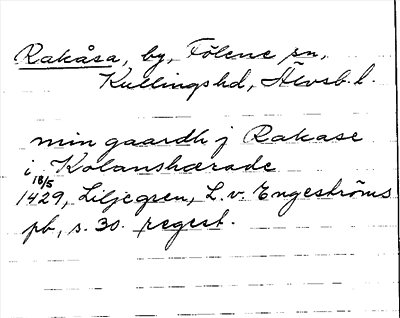 Rakåsa, by, Fölene sn,
Kullingshd, Älvsb. l.
min gaardh j Rakase
i Kolanshærade
18/5
1429, Liljegren, L. v. Engeströms
pb, s. 30. regest.